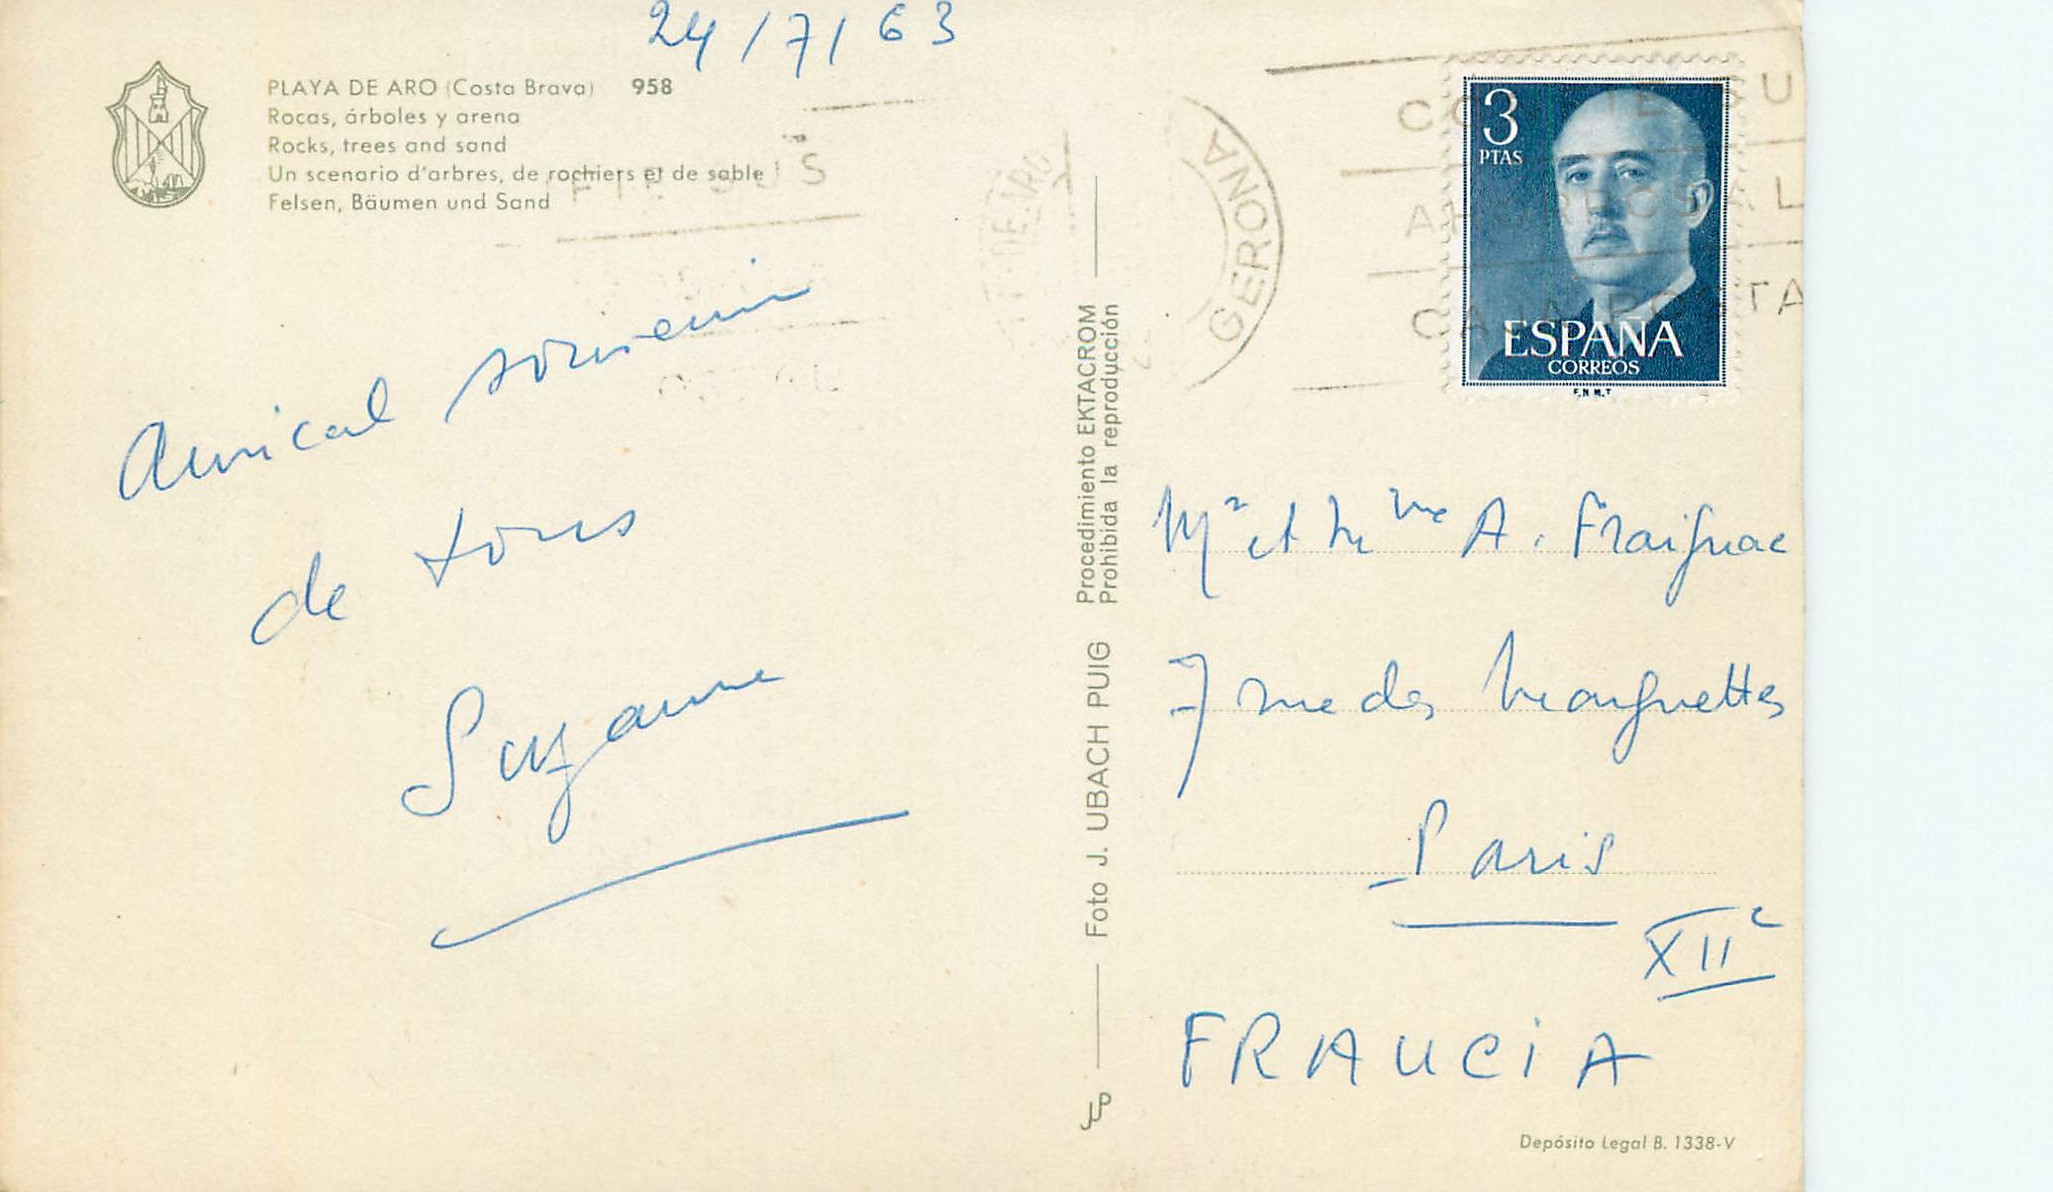 24/7/63
PLAYA DE ARO (Costa Brava) 958
Rocas, árboles y arena
Rocks, trees and sand
Un scenario d'arbres, de rochiers et de sable
Felsen, Bäumen und Sand
Amical souvenir
de tous
Suzanne
Procedimiento EKTACROM
Prohibida la reproducción
Foto J. UBACH PUIG
JUP
GERONA
3
PTAS
ESPAÑA
CORREOS
F.N.M.T
Mr et Mme A. Fraignac
7 rue des Marguettes
Paris
XIIe
FRANCIA
Depósito Legal B. 1338-V